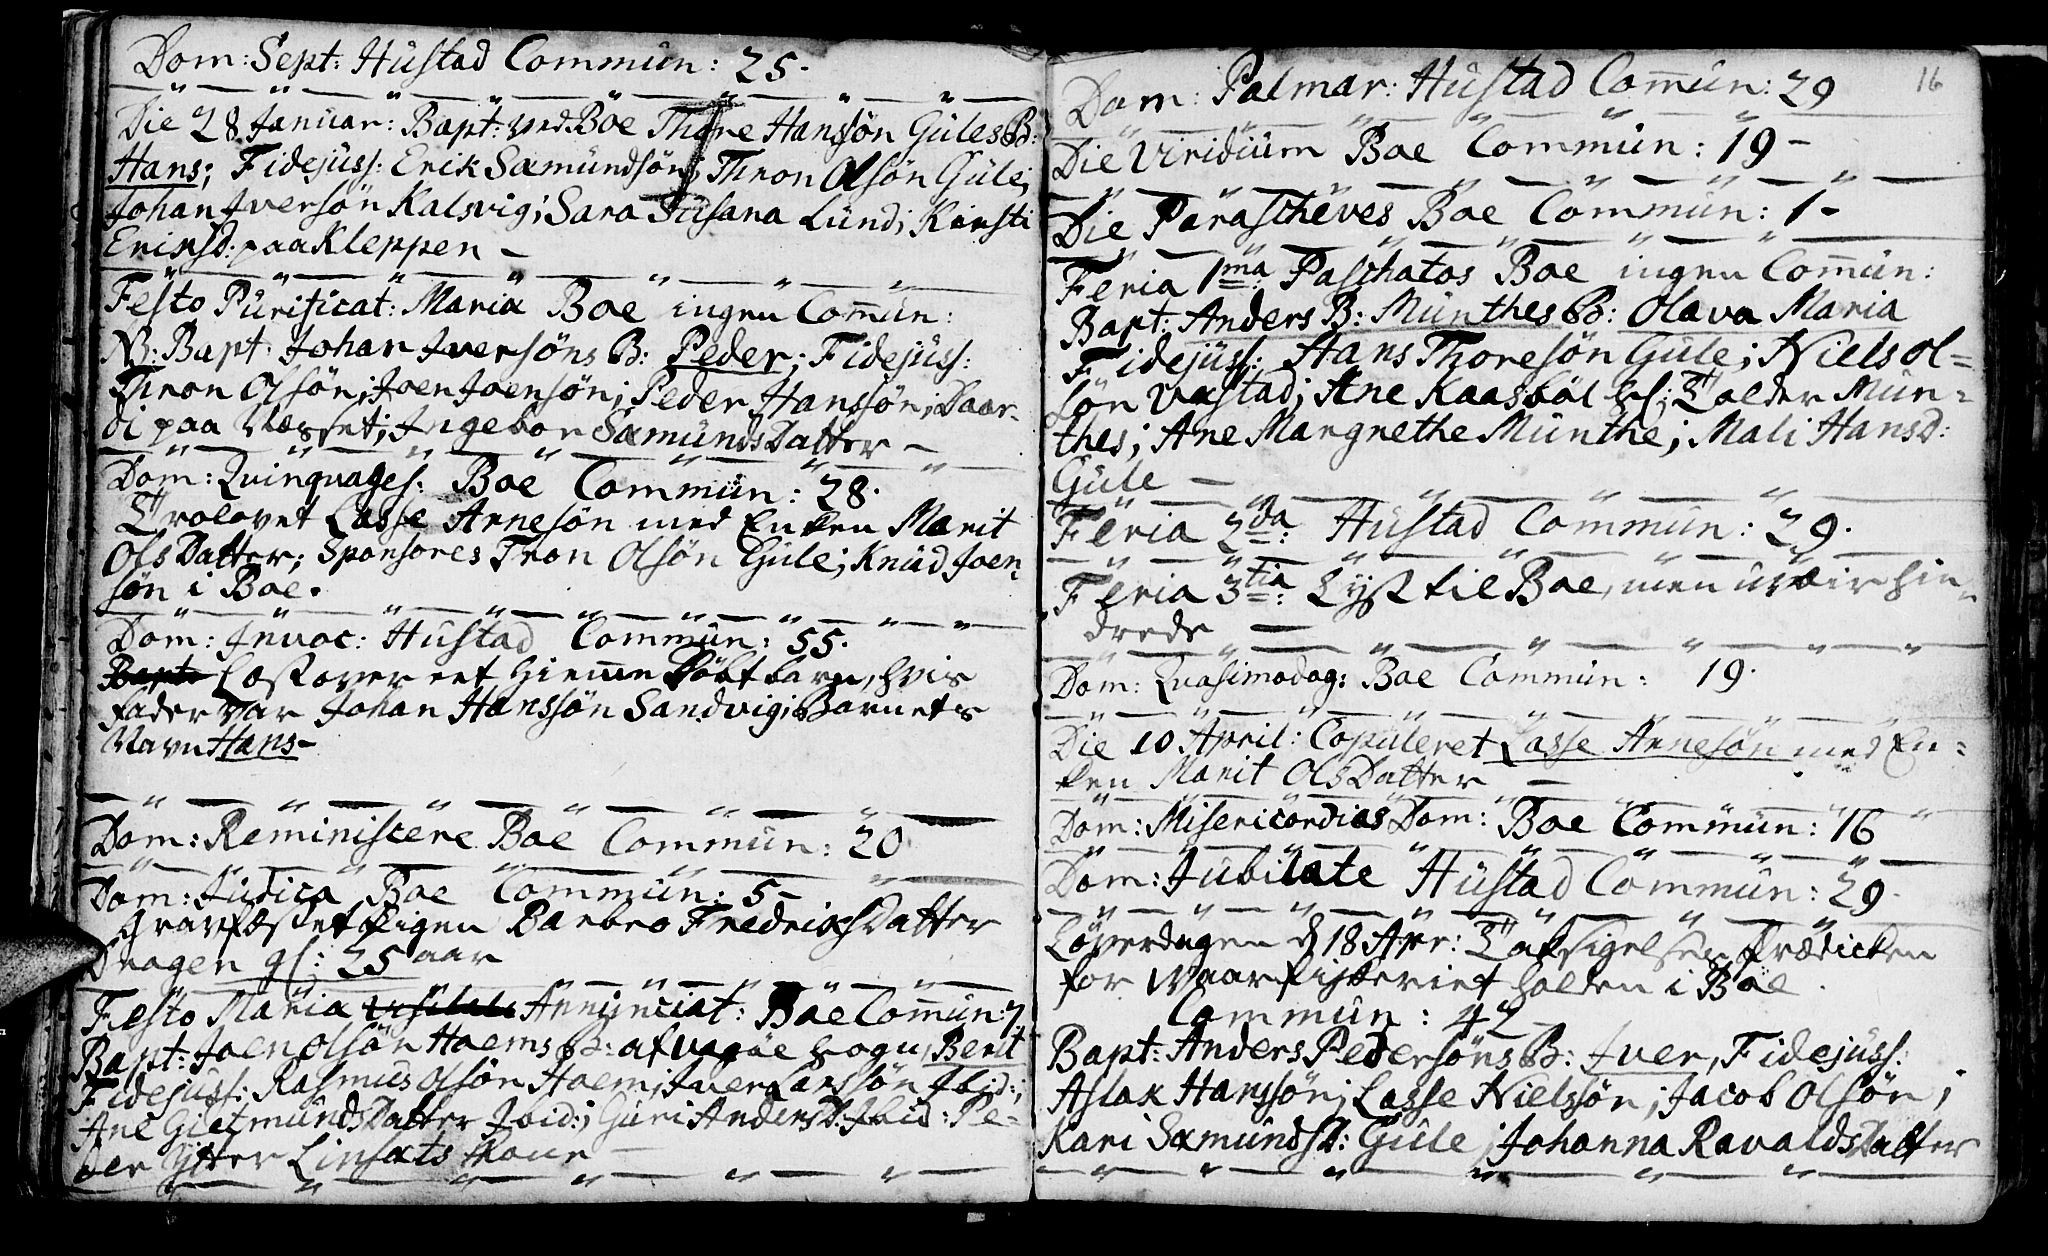 Dom: Sept: Hustad Commun: 25.
Die 28 Januar: Bapt: ved Boe Thore Hansön Gules B:
Hans; Fidejuss: Erik Sæmundsön; Thron Olsön Gule;
Johan Iversön Kalsvig; Sara Susana Lund; Kirsti
Eriksd: paa Kleppen –
Festo Purificat: Mariæ Boe ingen Comun:
NB: Bapt. Johan Iversöns B: Peder; Fidejuss:
Thron Olsön; Joen Joensön; Peder Hanssön;
di paa Næsset; Ingebor Sæmunds Datter –
Dom: Qvinqvages: Boe Commun: 28.
Trolovet Lasse Arnesön med Enken Marit
Ols Datter; Sponsores Tron Olsön Gule; Knud Joen-
sön i Boe.
Dom: Invoc: Hustad Commun: 55.
Bapt: Læst over eet hiemme döbt barn, hvis
fader var Johan Hanssön Sandvig; Barnets
Navn Hans –
Dom: Reminiscere Boe Commun: 20
Dom: Judica Boe Commun: 5 –
Gravfæstet Pigen Barbro Fredrichs Datter
Dragen gl: 25 aar
Festo Maria Annunciat: Boe Comun: 7
Bapt: Joen Olsön Hoems B: af Sogn, Berit
Fidejuss: Rasmus Olsön Hoem; Iver Larssön Ibid:;
Ane Gietmunds Datter Ibid:; Guri Anders D: Ibid: Pe-
der Linsæts Kone –
16
Dom: Palmar: Hustad Comun: 29
Die Viridium Boe Commun: 19 –
Die Parascheves Boe Commun: 1 –
Feria 1ma: Paschatos Boe ingen Comun:
Bapt: Anders B: Munthes B: Olava Maria
Fidejuss: Hans Thoresön Gule; Niels Ol=
sön Vastad; Ane Kaasböl Sl: Tolder Mun=
thes; Ane Margrethe Munthe; Mali Hansd:
Gule –
Feria 2da: Hustad Commun: 29.
Feria 3tia: Lyst til Boe, men uveir hin-
drede –
Dom: Qvasimodog: Boe Commun: 19.
Die 10 April: Copuleret Lasse Arnesön med En=
ken Marit Ols Datter –
Dom: Misericordias Dom: Boe Commun: 16
Dom: Jubilate Hustad Commun: 29.
Löverdagen d 18 Apr: Taksigelses Prædicken
for Vaarfiskeriet holden i Boe.
Commun: 42 –
Bapt: Anders Pedersöns B: Iver, Fidejuss:
Aslak Hanssön; Lasse Nielssön; Jacob Olsön;
Kari Sæmunds D: Gule; Johanna Ravalds Datter